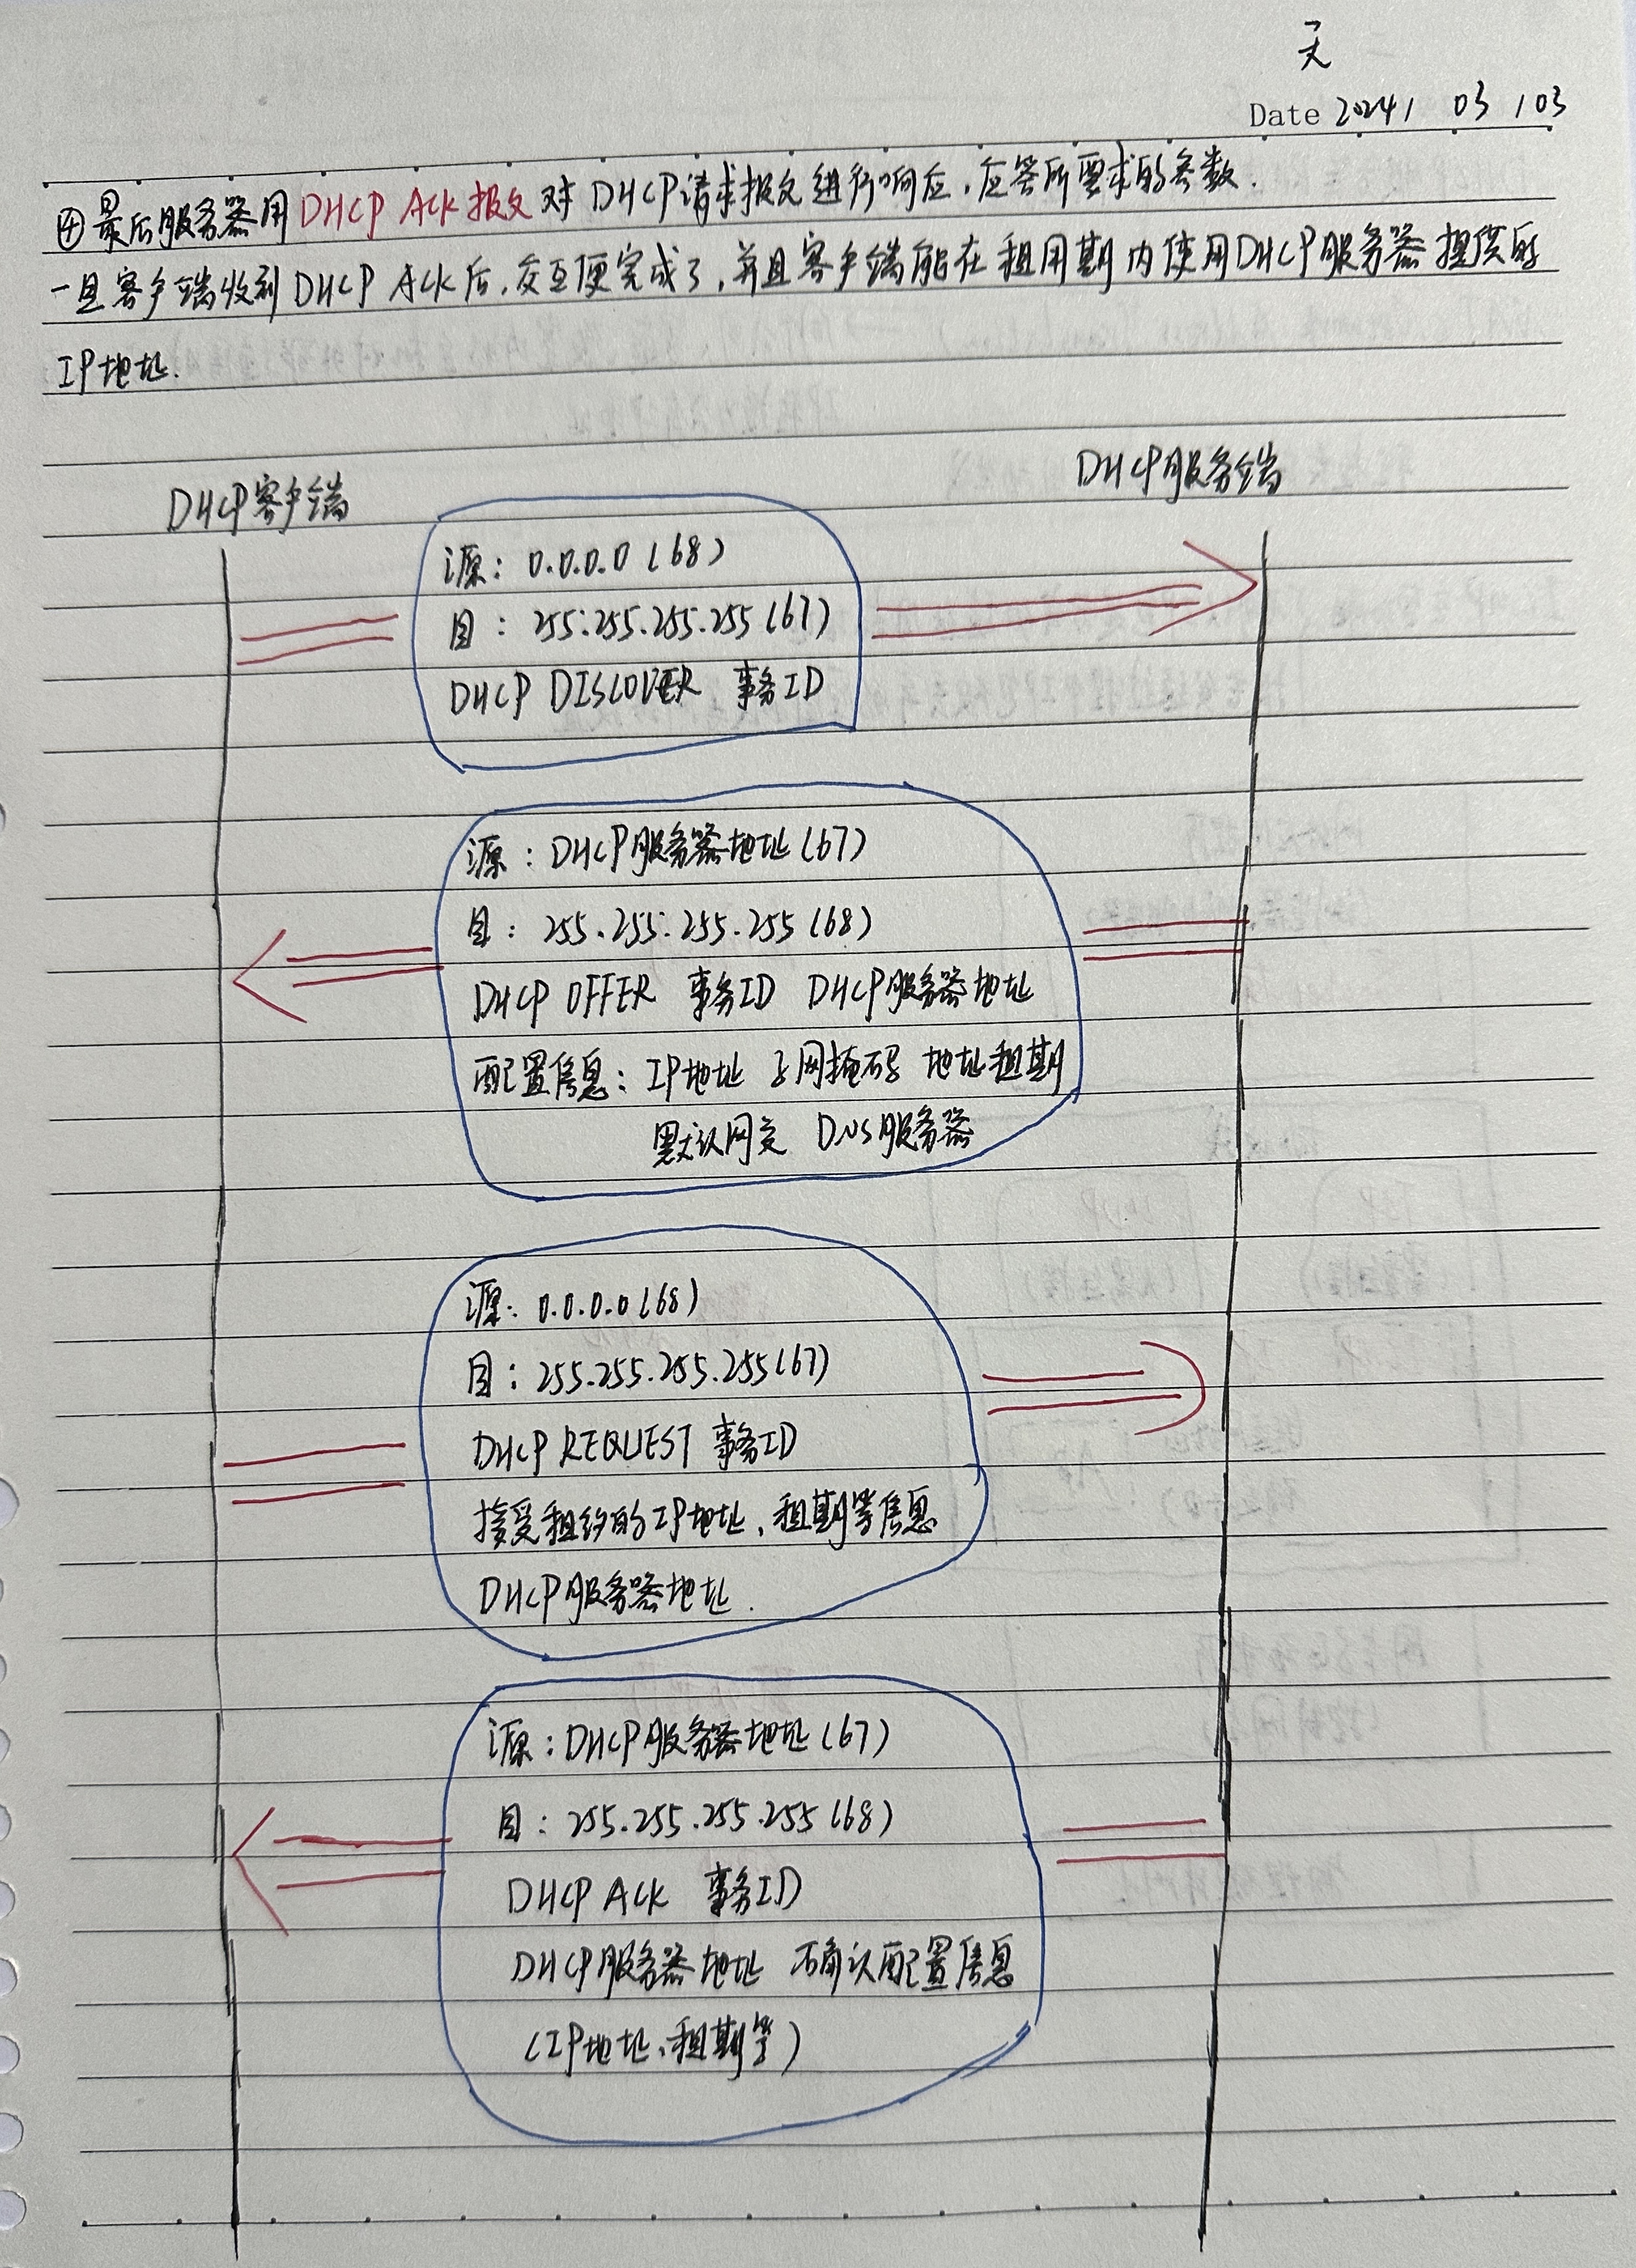 天
Date 2024 / 03 / 03
④最后服务器用DHCP ACK报文对DHCP请求报文进行响应,应答所要求的参数.
一旦客户端收到DHCP ACK后,交互便完成了,并且客户端能在租用期内使用DHCP服务器提供的
IP地址.
DHCP客户端
DHCP服务端
源: 0.0.0.0 (68)
目: 255.255.255.255 (67)
DHCP DISCOVER 事务ID
源: DHCP服务器地址 (67)
目: 255.255.255.255 (68)
DHCP OFFER 事务ID DHCP服务器地址
配置信息: IP地址 子网掩码 地址租期
默认网关 DNS服务器
源: 0.0.0.0 (68)
目: 255.255.255.255 (67)
DHCP REQUEST 事务ID
接受租约的IP地址、租期等信息
DHCP服务器地址.
源: DHCP服务器地址 (67)
目: 255.255.255.255 (68)
DHCP ACK 事务ID
DHCP服务器地址 确认配置信息
(IP地址、租期等)